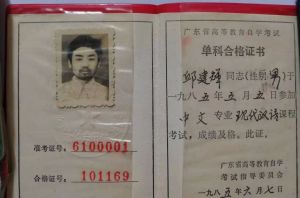 准考证号：6100001
合格证号：101169
广东省高等教育自学考试
单科合格证书
邱建辉同志(性别男)于
一九八五年五月五日参加
中文专业现代汉语课程
考试，成绩及格。此证。
广东省高等教育自学
考试指导委员会
一九八五年六月七日